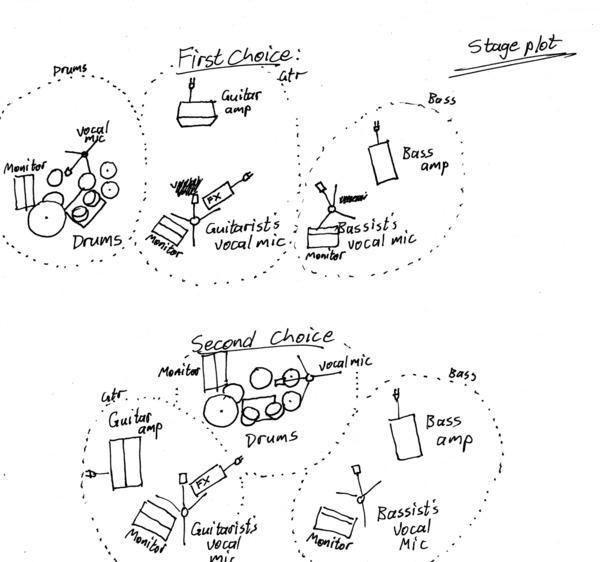 Stage plot
First Choice:
Drums
Gtr
Bass
Guitar
amp
vocal
mic
Monitor
Bass
amp
FX
Drums
Guitarist's
vocal mic
Monitor
Bassist's
vocal mic
Monitor
Second Choice
Monitor
vocal mic
Gtr
Bass
Guitar
amp
Drums
Bass
amp
FX
Monitor
Guitarist's
vocal
mic
Monitor
Bassist's
Vocal
Mic